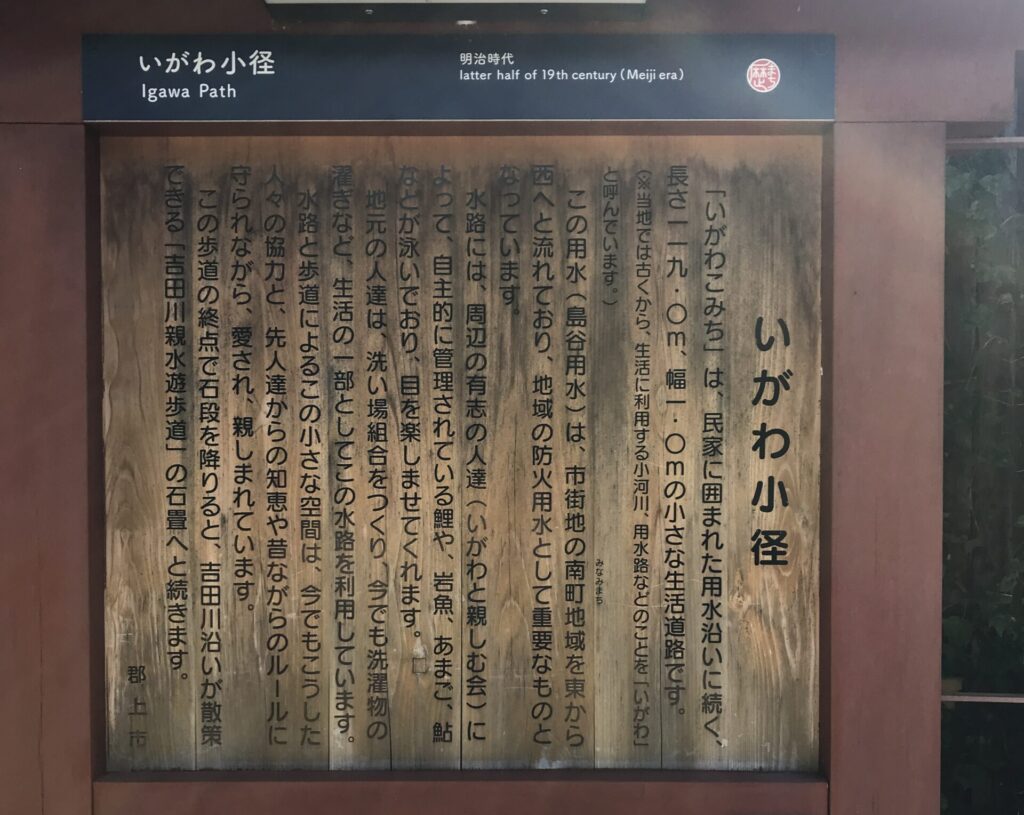 いがわ小径
Igawa Path
明治時代
latter half of 19th century (Meiji era)
いがわ小径
「いがわこみち」は、民家に囲まれた用水沿いに続く、
長さ一一九・〇m、幅一・〇mの小さな生活道路です。
(※当地では古くから、生活に利用する小河川、用水路などのことを「いがわ」
と呼んでいます。)
みなみまち
この用水(島谷用水)は、市街地の南町地域を東から
西へと流れており、地域の防火用水として重要なものと
なっています。
水路には、周辺の有志の人達(いがわと親しむ会)に
よって、自主的に管理されている鯉や、岩魚、あまご、鮎
などが泳いでおり、目を楽しませてくれます。
地元の人達は、洗い場組合をつくり、今でも洗濯物の
濯ぎなど、生活の一部としてこの水路を利用しています。
水路と歩道によるこの小さな空間は、今でもこうした
人々の協力と、先人達からの知恵や昔ながらのルールに
守られながら、愛され、親しまれています。
この歩道の終点で石段を降りると、吉田川沿いが散策
できる「吉田川親水遊歩道」の石畳へと続きます。
郡上市